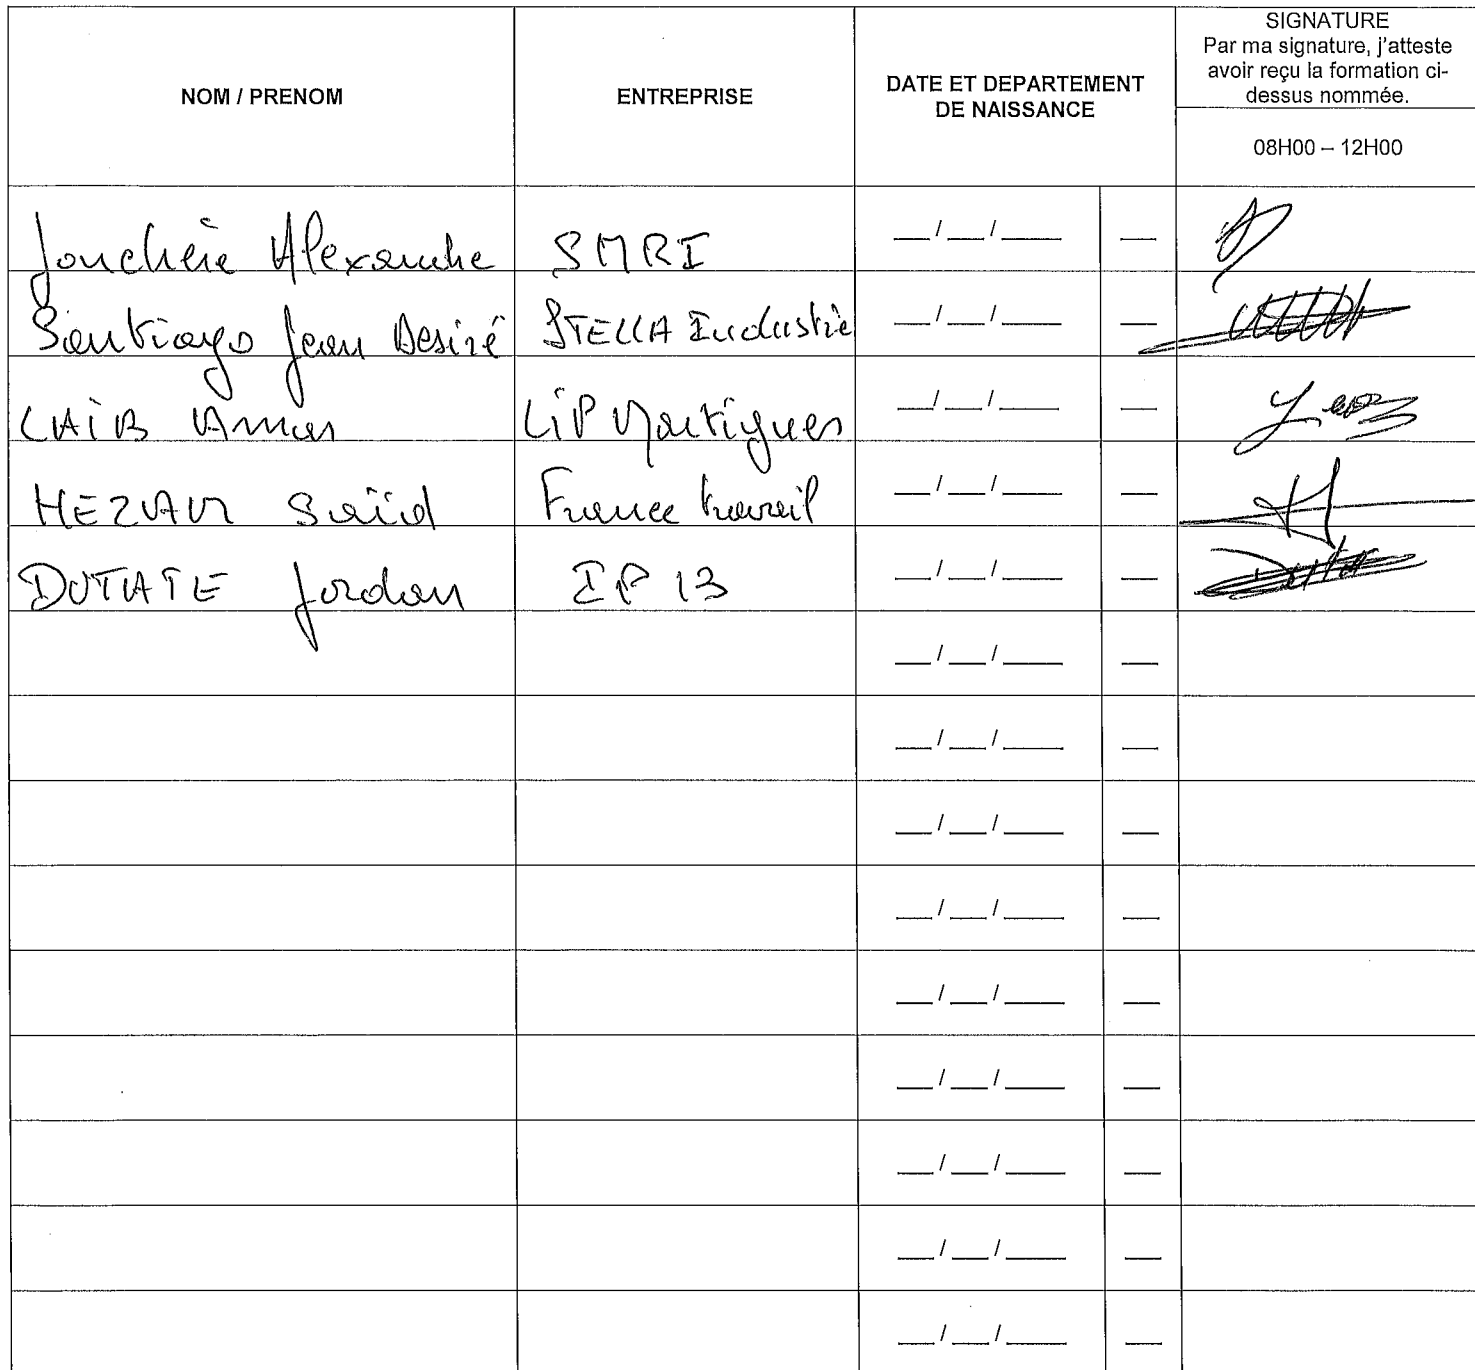 NOM / PRENOM
ENTREPRISE
DATE ET DEPARTEMENT
DE NAISSANCE
SIGNATURE
Par ma signature, j'atteste
avoir reçu la formation ci-
dessus nommée.
08H00 – 12H00
Alexandre SMRI __/__/____ __
Santiago Jean Desiré STELLA Industrie __/__/____ __
LAÏB Amar LiP Martigues __/__/____ __
Saïd France travail __/__/____ __
Jordan __/__/____ __
__/__/____ __
__/__/____ __
__/__/____ __
__/__/____ __
__/__/____ __
__/__/____ __
__/__/____ __
__/__/____ __
__/__/____ __